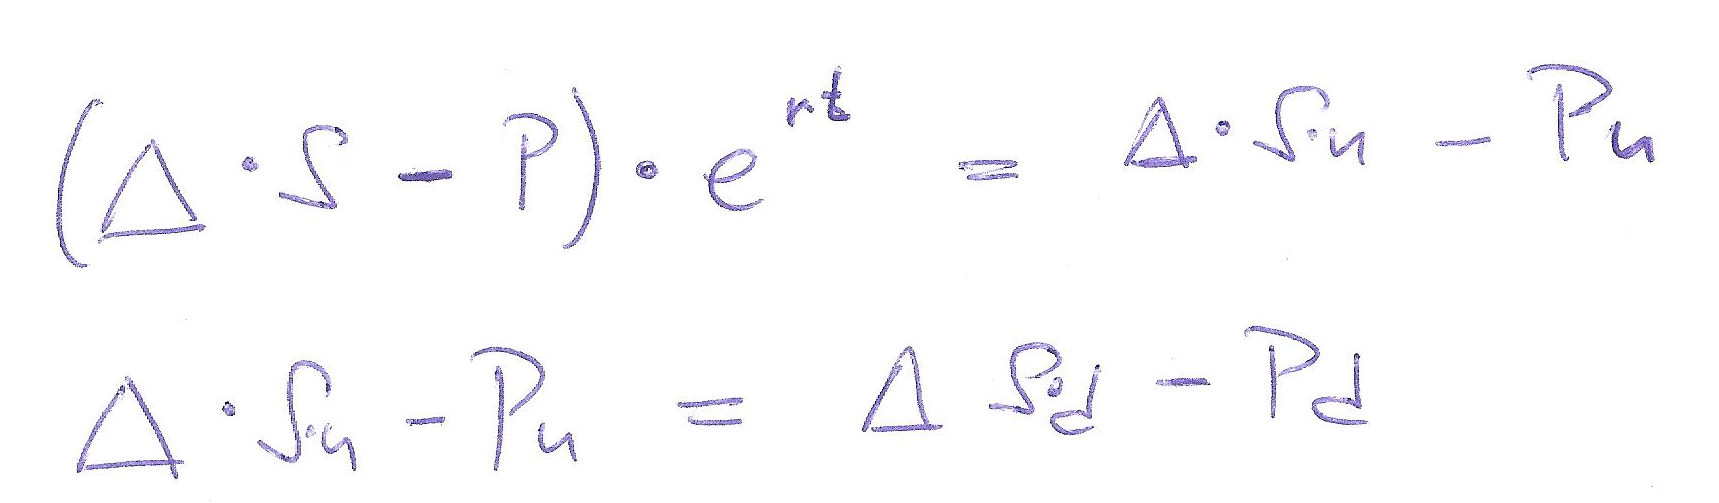 (Δ · S - P) · e^{rt} = Δ · S·u - P_u
Δ · S·u - P_u = Δ S·d - P_d